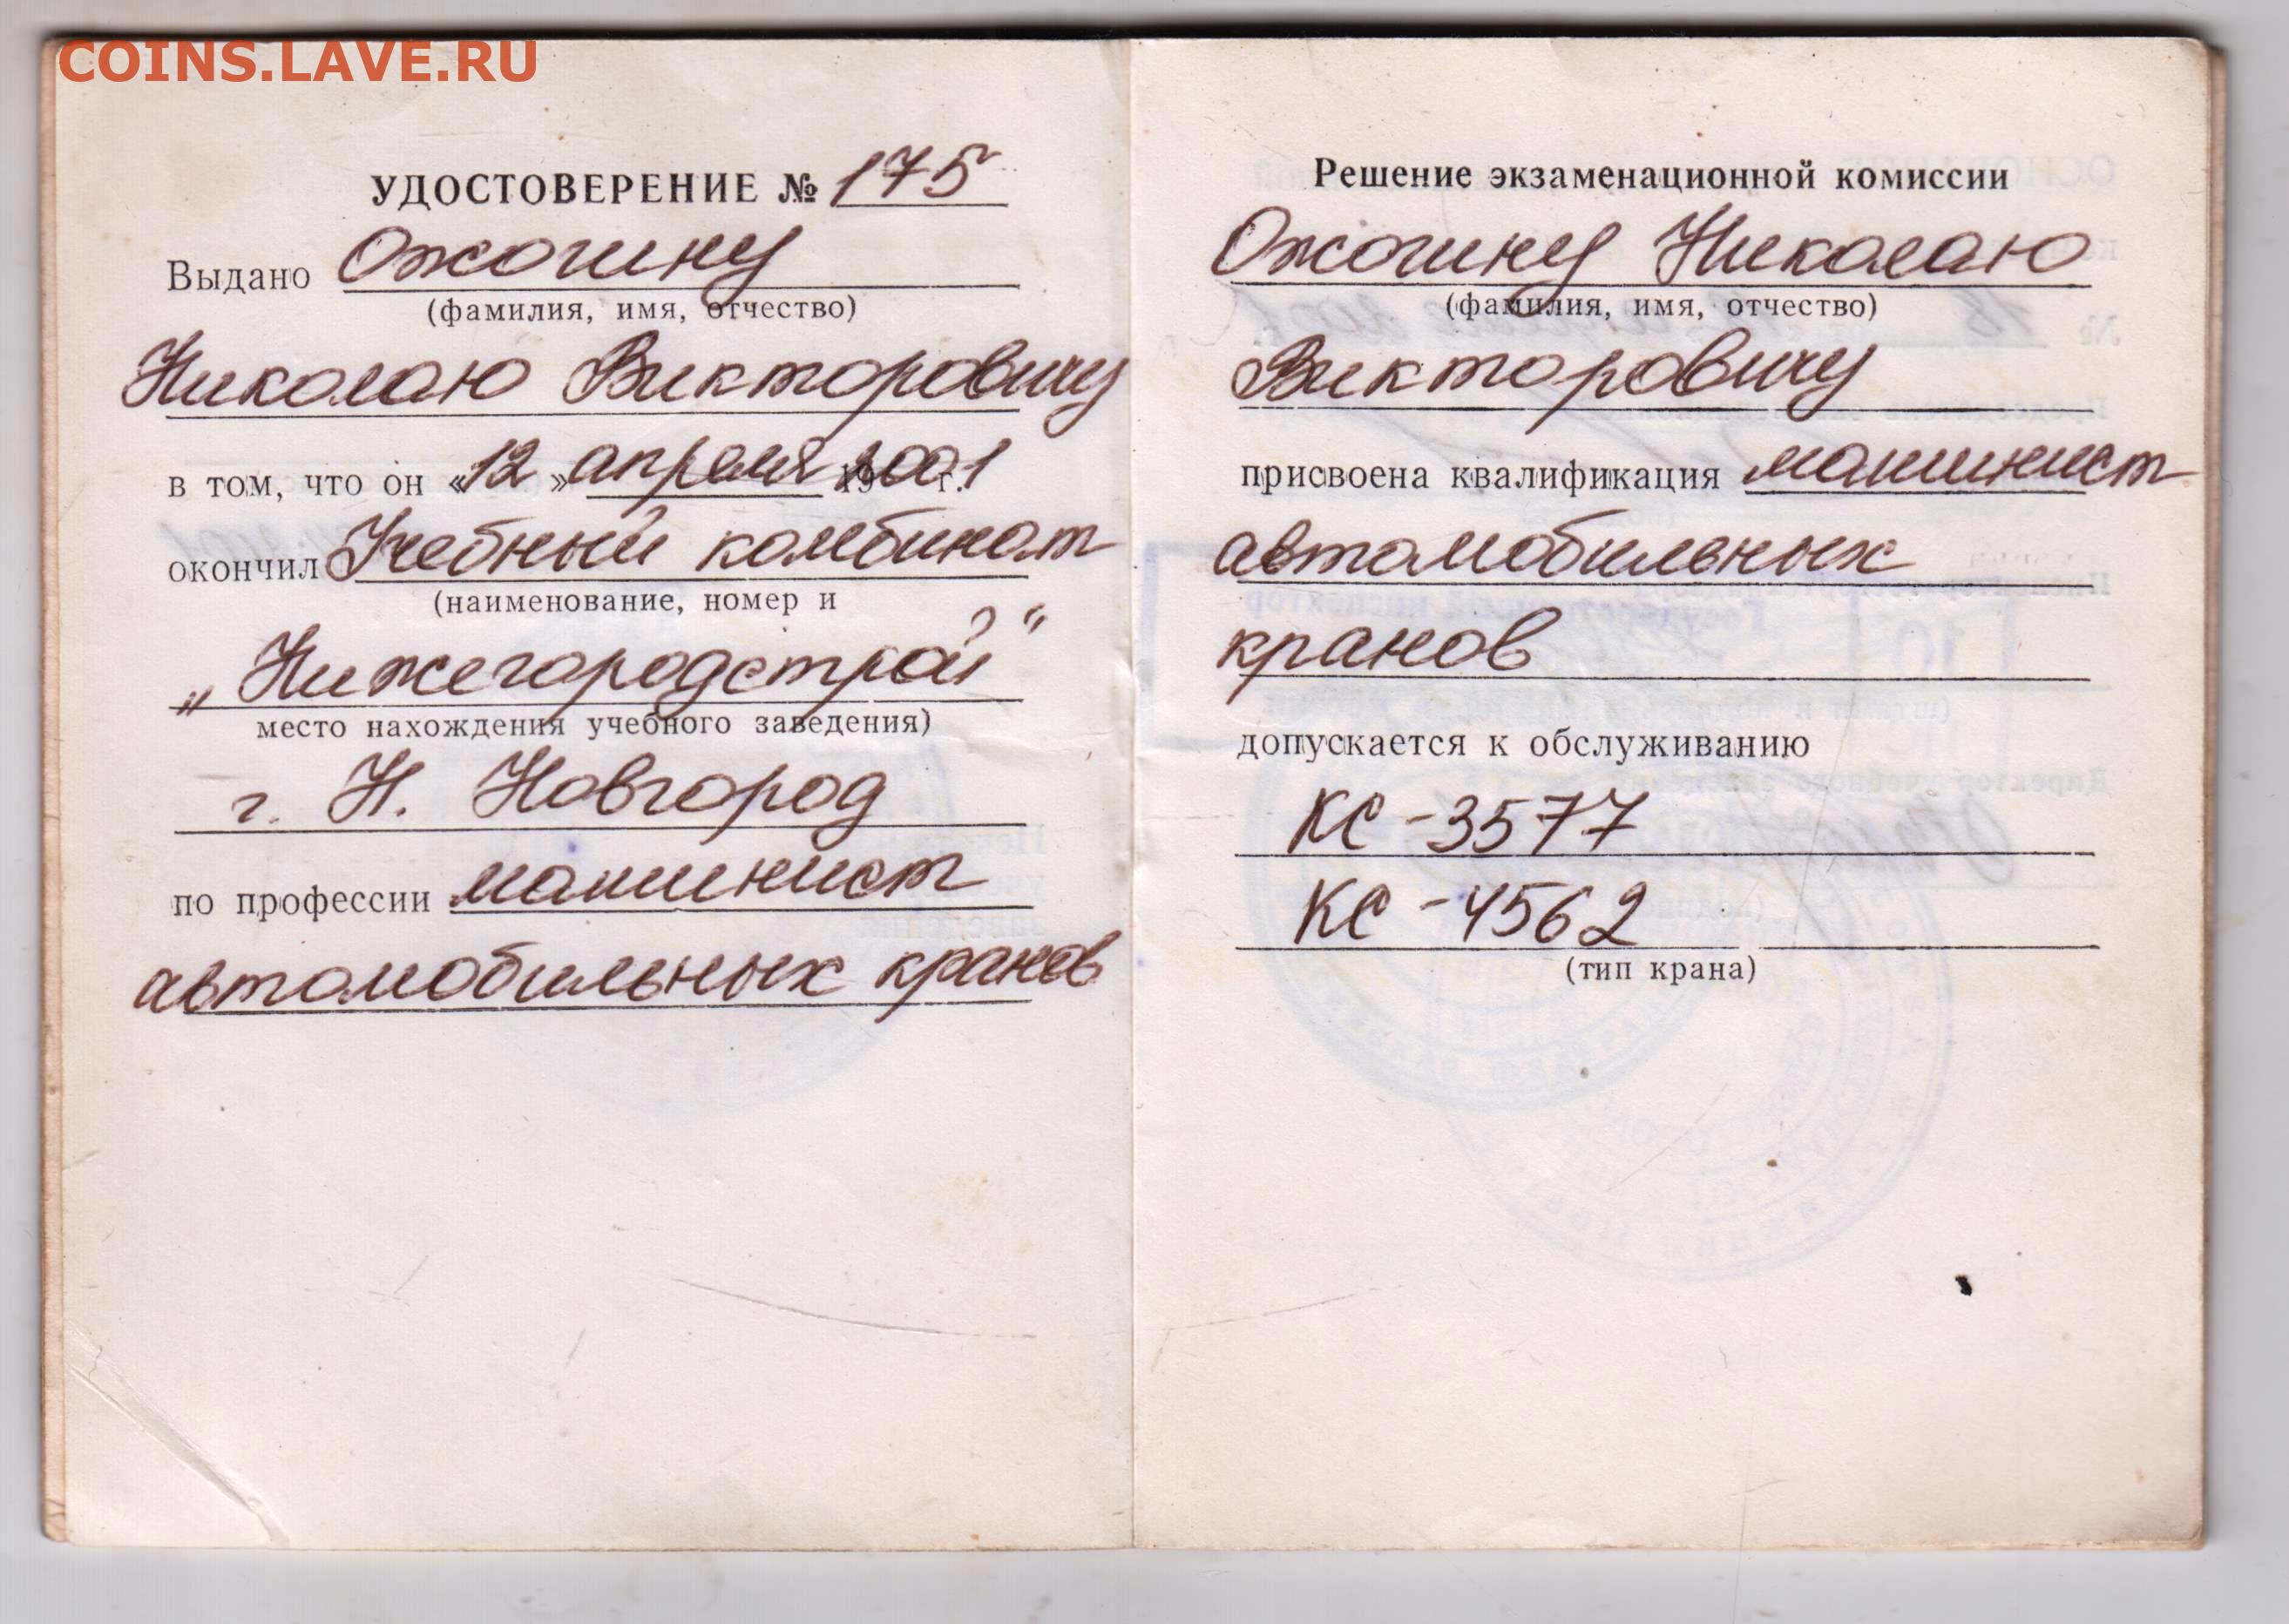 COINS.LAVE.RU
УДОСТОВЕРЕНИЕ № 175
Выдано Ожогину
(фамилия, имя, отчество)
Николаю Викторовичу
в том, что он «12» апреля 2001 г.
окончил Учебный комбинат
(наименование, номер и
„Нижегородстрой“
место нахождения учебного заведения)
г. Н. Новгород
по профессии машинист
автомобильных кранов
Решение экзаменационной комиссии
Ожогину Николаю
(фамилия, имя, отчество)
Викторовичу
присвоена квалификация машинист
автомобильных
кранов
допускается к обслуживанию
КС-3577
КС-4562
(тип крана)